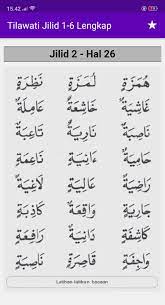 15.42
Tilawati Jilid 1-6 Lengkap
Jilid 2 - Hal 26
هُمَزَةٍ لُمَزَةٍ نَظِرَةٍ
غَاشِيَةٌ خَاشِعَةٌ عَامِلَةٌ
نَاصِبَةٌ نَارِيَةٌ
حَامِيَةٌ ءَانِيَةٌ نَاعِمَةٌ
عَالِيَةٌ لَاغِيَةٌ
جَارِيَةٌ وَاقِعَةٌ كَاذِبَةٌ
كَاشِفَةٌ رَافِعَةٌ
وَاجِفَةٌ قَاصِرَةٌ
Latihan-latihan bacaan